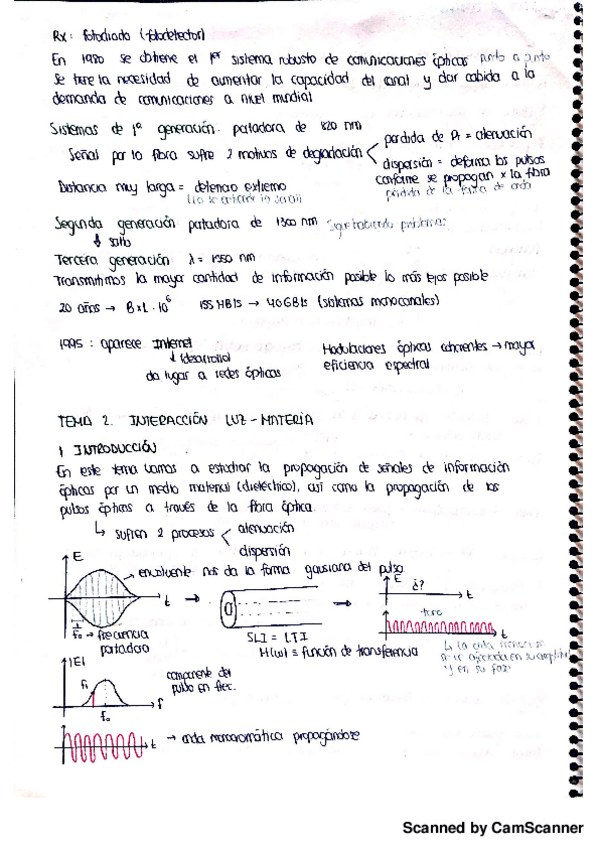 Rx: fotodiodo (fotodetector)
En 1980 se obtiene el 1er sistema robusto de comunicaciones ópticas punto a punto
Se tiene la necesidad de aumentar la capacidad del canal y dar cabida a la
demanda de comunicaciones a nivel mundial
Sistemas de 1ª generación: portadora de 820 nm
Señal por la fibra sufre 2 motivos de degradación
perdida de Pt = atenuación
dispersión = deforma los pulsos
conforme se propagan x la fibra
pérdida de la forma de onda
Distancia muy larga = deterioro extremo
Segunda generación portadora de 1300 nm sigue habiendo problemas
↓ salto
Tercera generación λ = 1550 nm
Transmitimos la mayor cantidad de información posible lo más lejos posible
20 años → B×L · 10⁶ 155 MB/s → 40GB/s (sistemas monocanales)
1995 : aparece Internet
↓ (desarrollo)
da lugar a redes ópticas
Modulaciones ópticas coherentes → mayor
eficiencia espectral
TEMA 2. INTERACCIÓN LUZ - MATERIA
1 INTRODUCCIÓN
En este tema vamos a estudiar la propagación de señales de información
ópticas por un medio material (dieléctrico), así como la propagación de los
pulsos ópticos a través de la fibra óptica.
↳ sufren 2 procesos
atenuación
dispersión
E
envolvente nos da la forma gaussiana del pulso
t
E
¿?
t
1/f₀ → frecuencia
portadora
SLI = LTI
H(w) ≡ función de transferencia
tono
↳ la onda
se ve afectada en su amplitud
y en su fase
|E|
f₁
f₀
f
componente del
pulso en frec.
t → onda monocromática propagándose
Scanned by CamScanner